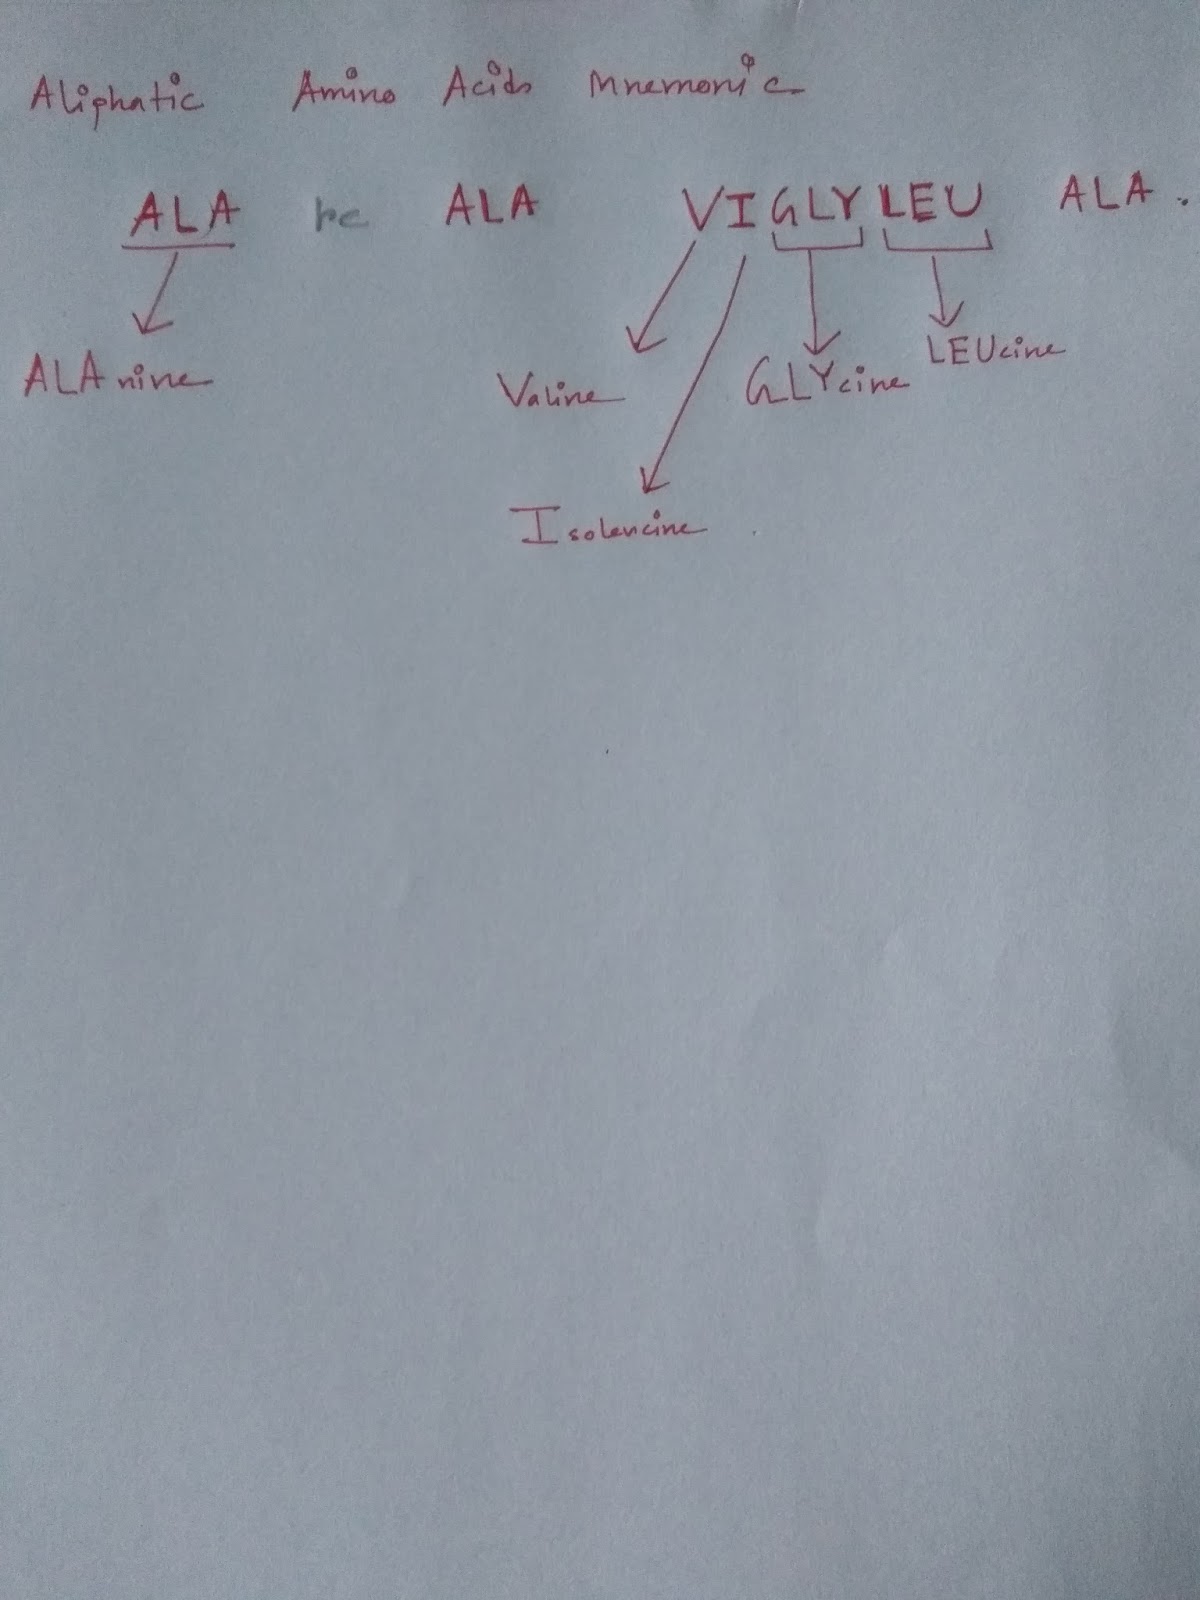 Aliphatic Amino Acids Mnemonic
ALA re ALA VIGLYLEU ALA.
LEUcine
ALAnine Valine GLYcine
Isoleucine